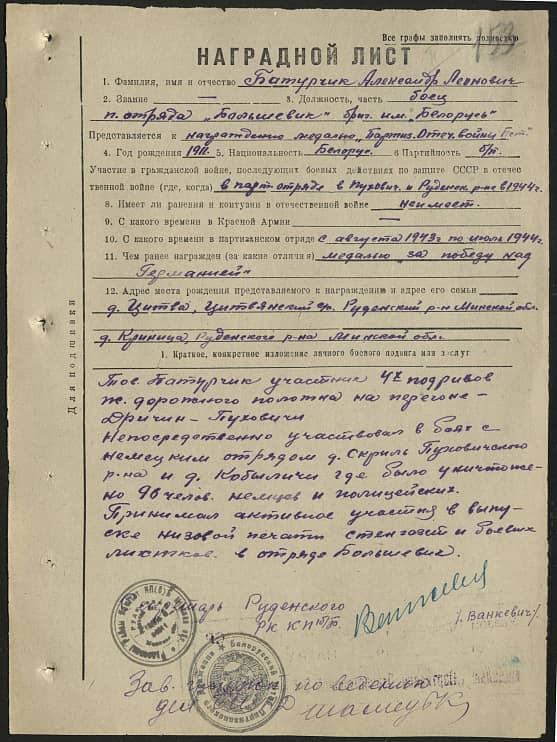 Все графы заполнять полностью
НАГРАДНОЙ ЛИСТ
1. Фамилия, имя и отчество Батурчик Александр Леонович
2. Звание — 3. Должность, часть боец
п. отряда „Большевик" бриг. им. „Белорусь"
Представляется к награждению медалью „Партиз. Отеч. войны
4. Год рождения 1911. 5. Национальность Белорус. 6 Партийность б/п.
Участие в гражданской войне, последующих боевых действиях по защите СССР в отечес-
твенной войне (где, когда) в парт. отряде в Пухович. и Руденск. р-не в 1944 г.
8. Имеет ли ранения и контузии в отечественной войне неимеет.
9. С какого времени в Красной Армии —
10. С какого времени в партизанском отряде с августа 1943 г по июль 1944 г.
11. Чем ранее награжден (за какие отличия) медалью „за победу над
Германией"
12. Адрес места рождения представляемого к награждению и адрес его семьи
д. Цитва, Цитвянский Руденский р-н Минской обл.
д. Криница, Руденского р-на Минской обл.
I. Краткое, конкретное изложение личного боевого подвига или заслуг
Тов. Батурчик участник 4х подривов
ж. дорожного полотна на перегоне-
Дричин-Пуховичи
Непосредственно участвовал в боях с
немецким отрядом д. Скриль Пуховичского
р-на и д. Кобыличи где было уничтоже-
но 96 челов. немцев и полицейских.
Принимал активное участия в выпу-
ске низовой печати стенгозет и боевых
листков. в отряде Большевик.
Руденского
РК КП/б/Б.
/. Ванкевич/
Зав.
Для подшивки